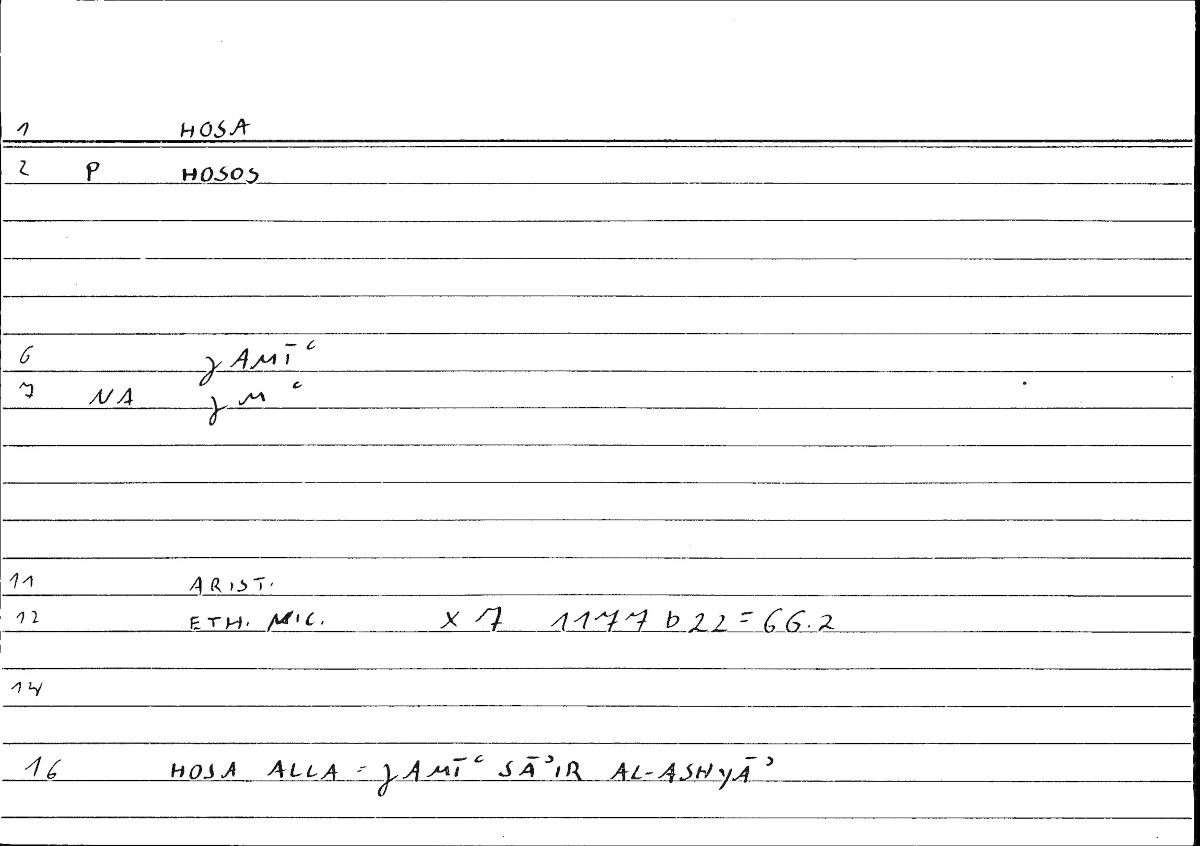 1 HOSA
2 P HOSOS
6 JAMĪʿ
7 NA JMʿ
11 ARIST.
12 ETH. NIC. X 7 1177 b 22 = 66.2
14
16 HOSA ALLA = JAMĪʿ SĀʾIR AL-ASHYĀʾ